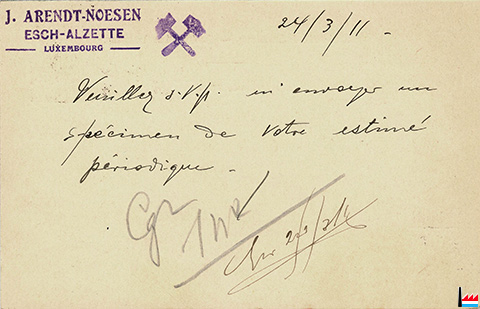 J. ARENDT-NOESEN
ESCH-ALZETTE
LUXEMBOURG
24/3/11.
Veuillez s.V.p. m'envoyer un
spécimen de votre estimé
périodique.